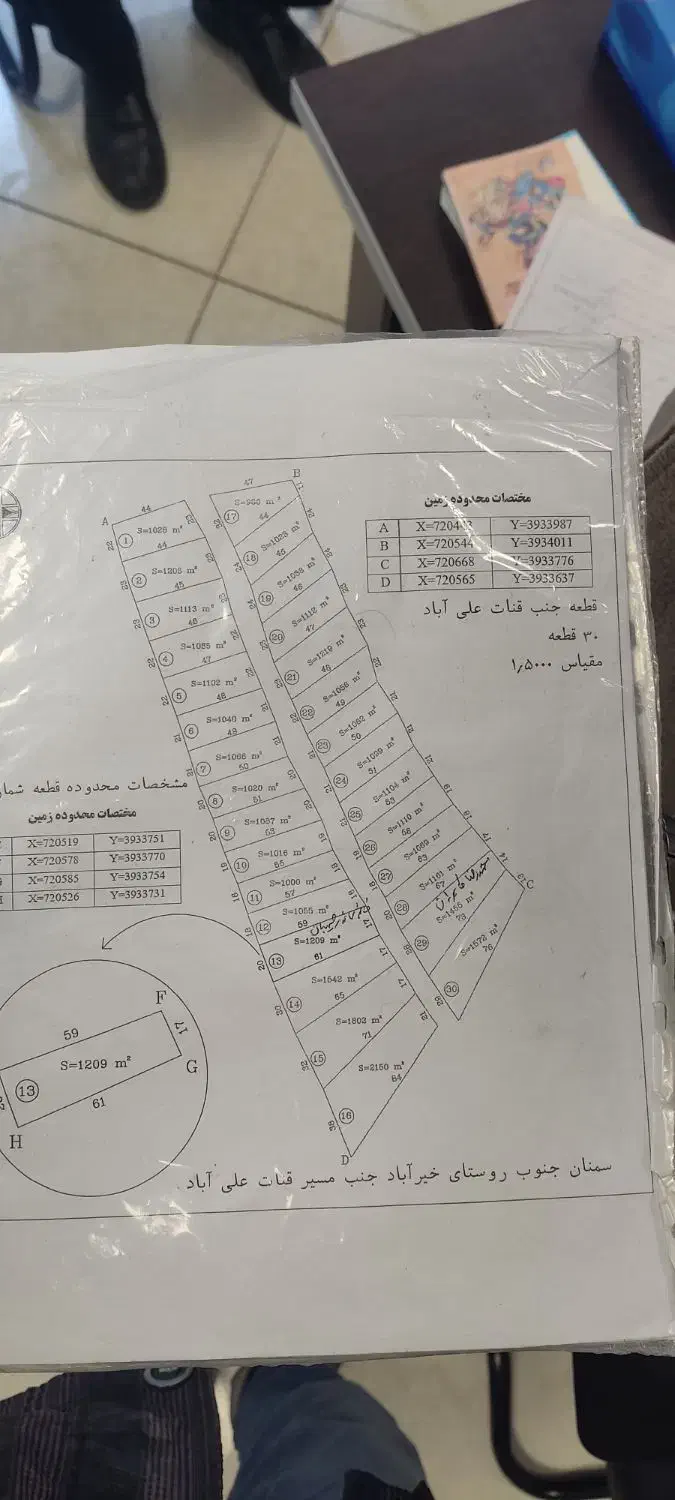 مختصات محدوده زمین
A X=720443 Y=3933987
B X=720544 Y=3934011
C X=720668 Y=3933776
D X=720565 Y=3933637
قطعه جنب قنات علی آباد
۳۰ قطعه
مقیاس ۱٫۵۰۰۰
A
44
B
47
11
1 S=1028 m²
44
2 S=1203 m²
45
3 S=1113 m²
46
4 S=1085 m²
47
5 S=1102 m²
48
6 S=1040 m²
49
7 S=1066 m²
50
8 S=1020 m²
51
9 S=1057 m²
53
10 S=1016 m²
55
11 S=1000 m²
57
12 S=1055 m²
59
13 S=1209 m²
61
14 S=1542 m²
65
15 S=1802 m²
71
16 S=2150 m²
84
D
17
44
18 S=1023 m²
46
19 S=1038 m²
46
20 S=1112 m²
47
21 S=1219 m²
48
22 S=1056 m²
49
23 S=1062 m²
50
24 S=1099 m²
51
25 S=1104 m²
53
26 S=1110 m²
58
27 S=1069 m²
63
28 S=1161 m²
67
29 S=1455 m²
73
30 S=1572 m²
76
C
مشخصات محدوده قطعه شمار
مختصات محدوده زمین
X=720519 Y=3933751
X=720578 Y=3933770
X=720585 Y=3933754
X=720526 Y=3933731
F
59
17
S=1209 m²
G
13
61
H
سمنان جنوب روستای خیرآباد جنب مسیر قنات علی آباد